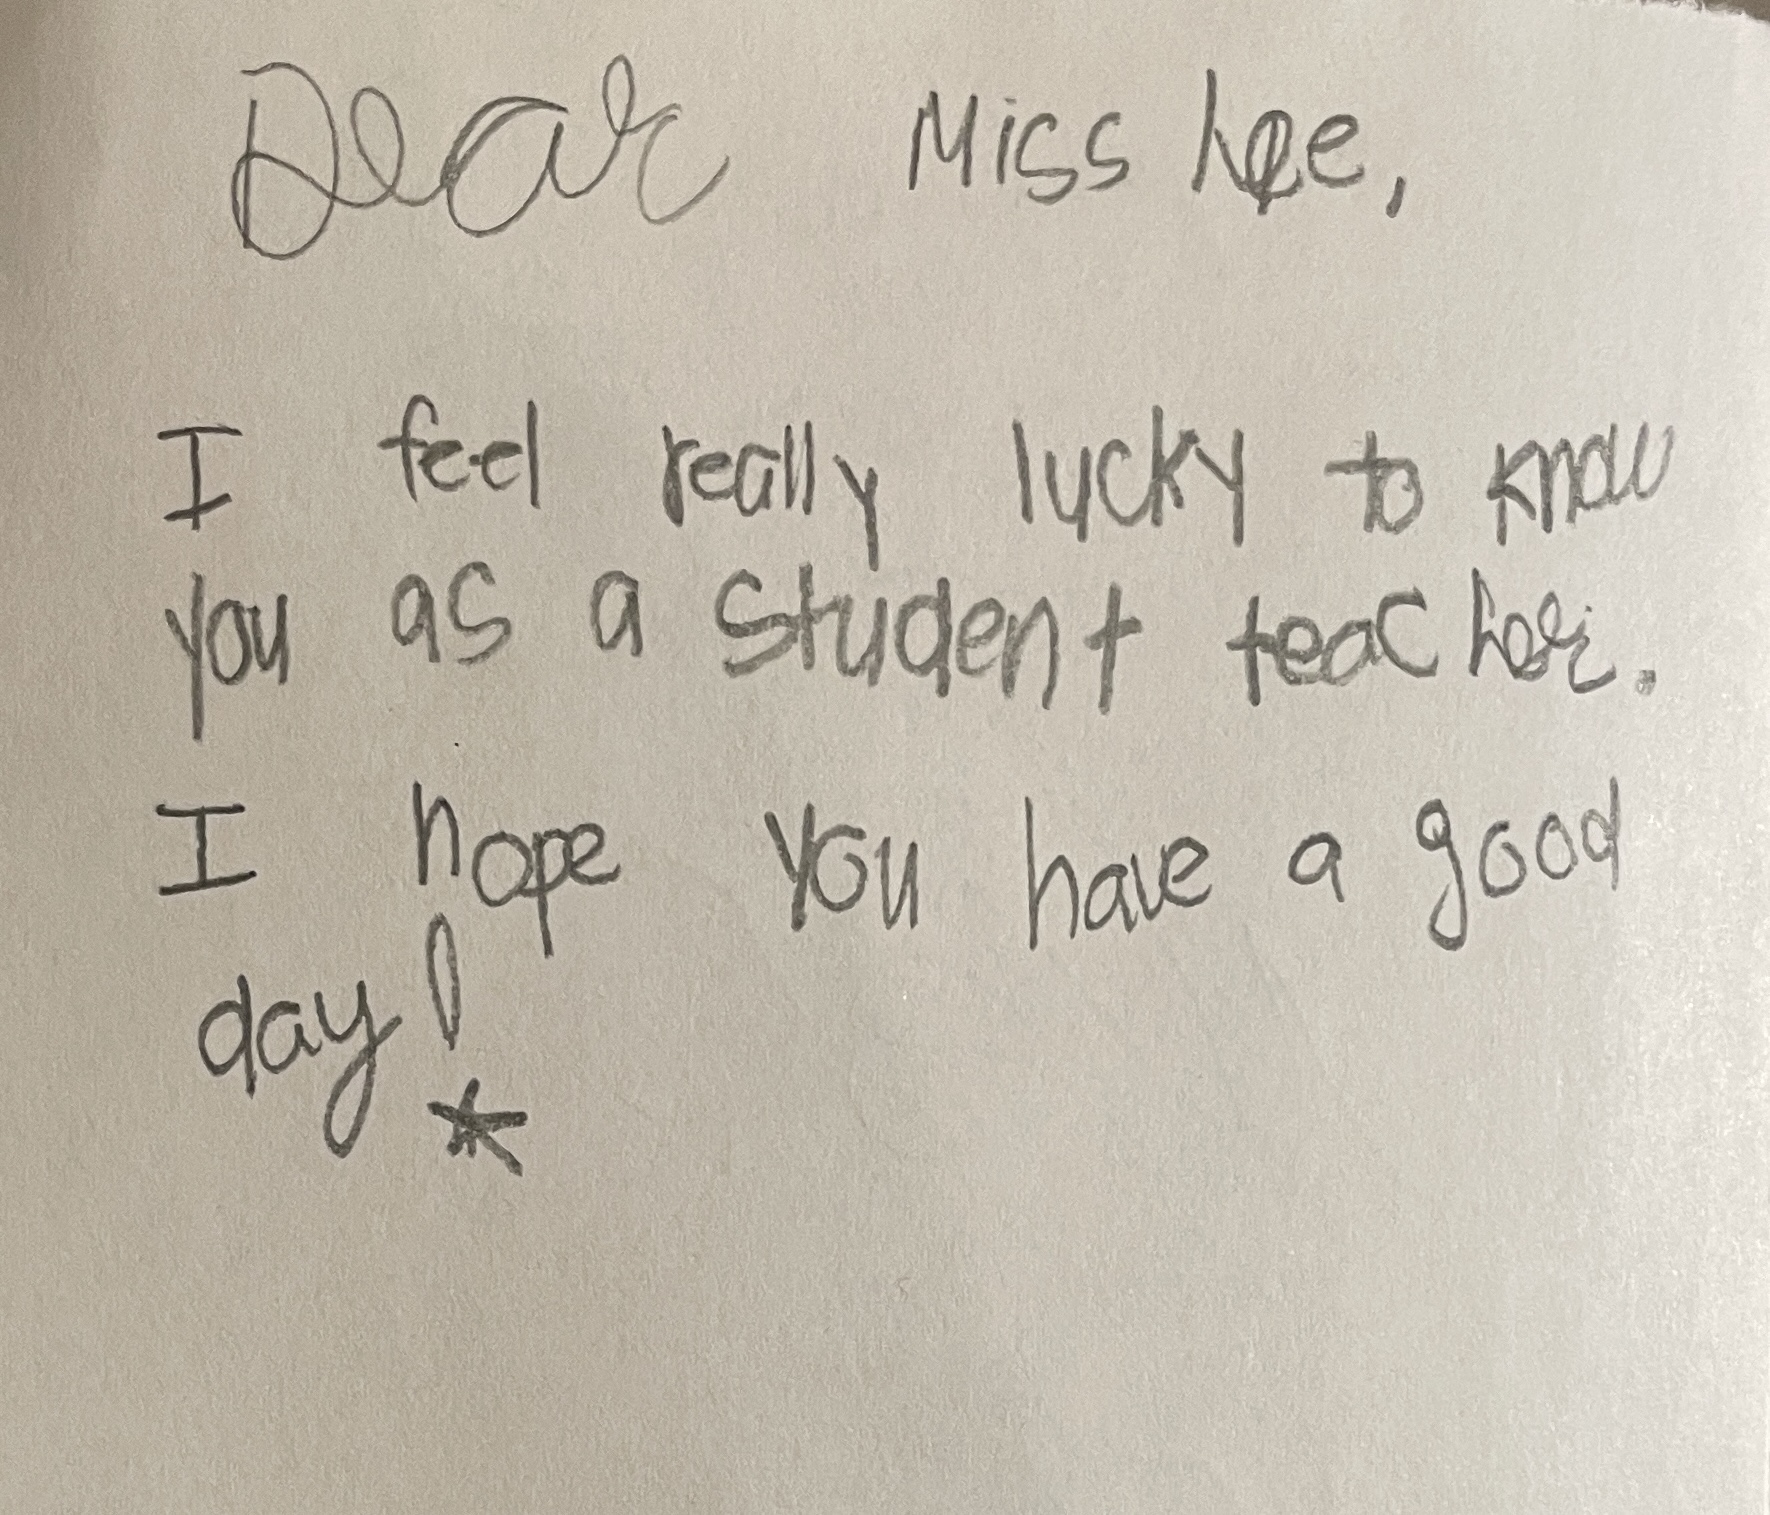 Dear Miss Lee,
I feel really lucky to know
you as a student teacher.
I hope you have a good
day!